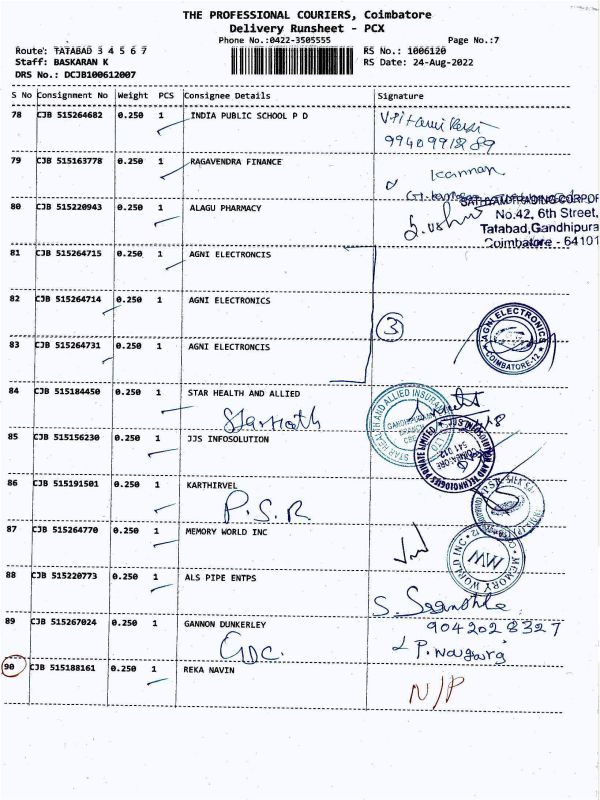 THE PROFESSIONAL COURIERS, Coimbatore
Delivery Runsheet - PCX
Phone No.:0422-3505555 Page No.:7
Route: TATABAD 3 4 5 6 7 RS No.: 1006120
Staff: BASKARAN K RS Date: 24-Aug-2022
DRS No.: DCJB100612007
S No Consignment No Weight PCS Consignee Details Signature
78 CJB 515264682 0.250 1 INDIA PUBLIC SCHOOL P D
9940991889
79 CJB 515163778 0.250 1 RAGAVENDRA FINANCE
Kannan
80 CJB 515220943 0.250 1 ALAGU PHARMACY
SATHYAM TRADING CORPOR
No.42, 6th Street,
Tatabad,Gandhipura
Coimbatore - 64101
81 CJB 515264715 0.250 1 AGNI ELECTRONCIS
82 CJB 515264714 0.250 1 AGNI ELECTRONCIS
3
AGNI ELECTRONICS
COIMBATORE-12
83 CJB 515264731 0.250 1 AGNI ELECTRONCIS
84 CJB 515184450 0.250 1 STAR HEALTH AND ALLIED
STAR HEALTH AND ALLIED INSURANCE
85 CJB 515156230 0.250 1 JJS INFOSOLUTION
JJS INFOSOLUTION AND TECHNOLOGIES PRIVATE LIMITED
86 CJB 515191501 0.250 1 KARTHIRVEL
P.S.R
87 CJB 515264770 0.250 1 MEMORY WORLD INC
MEMORY WORLD INC
MW
88 CJB 515220773 0.250 1 ALS PIPE ENTPS
89 CJB 515267024 0.250 1 GANNON DUNKERLEY
9042028327
GDC.
90 CJB 515188161 0.250 1 REKA NAVIN
N/P